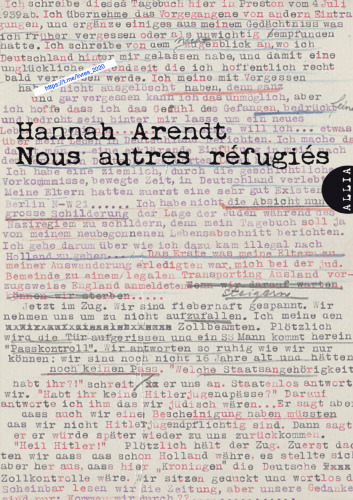 Ich schreibe dieses Tagebuch hier in Preston vom 4 Juli
1939 ab. Ich übernehme das Vorgegangene von andern Eintrag
ungen, und ergänze einiges aus meinem Gedächtniss was
ich früher vergessen oder als unwichtig empfunden
hatte. Ich schreibe von dem Augenblick an, wo ich
Deutschland hinter mir gelassen habe, und damit eine
unglückliche heit die ich hoffentlich recht
bald werde. Ich meine mit Vergessen
nicht ausgelöscht haben, denn ganz
und gar vergessen kann ich das unmöglich, aber
ich hoffe dass ich das Gefühl des Gefangen, bedrückt
und bedroht sein hinter mir lassen um ein neues
https://t.me/livres_2020
Hannah Arendt
Nous autres réfugiés
ALLIA
Ich habe eine ziemlich, durch die geschichtlichen
Vorkommnisse, bewegte Zeit, in Deutschland verlebt
Meine Eltern hatten zuerst eine sehr gut Existenz
Berlin N-W 21...... Ich habe nicht die Absicht nun
grosse Schilderung der Lage der Juden während des
Naziregiem zu schildern, denn mein Tagebuch soll ja
von meinem neubegonnenen Lebensabschnitt berichten.
Ich gehe darum über wie ich dazu kam illegal nach
Holland zu gehen. Das Erste was meine Eltern zu
meiner Auswanderung erledigten war, mich bei der jüd.
Gemeinde zu einem legalen Transport ins Ausland vor-
zugsweise England anmeldeten. Wenn wir darauf warten
können wir sterben
Jetzt im Zug. Wir sind fieberhaft gespannt. Wir
nehmen uns um zu nicht aufzufallen. Ich meine den
Zollbeamten. Plötzlich
wird die Tür aufgerissen und ein SS Mann kommt herein
"Passkontroll". Wir antworten so ruhig wie wir nur
können; wir sind noch nicht 16 Jahre alt und hätten
noch keinen Pass. "Welche Staatsangehörigkeit
habt ihr?!" schreit er uns an. Staatenlos antworte
wir. "Habt ihr keine Hitlerjugendpässe?" Darauf
antworte ich ihm das wir jüdisch wären. . Er sagt aber
dass auch wir eine Bescheinigung haben müssten
das wir nicht Hitlerjugendpflichtig sind. Dann sagt
er er würde später wieder zu uns zurückkommen.
"Heil Hitler!" Plötzlich hält der Zug. Zuerst dach
ten wir dass das schon Holland wäre, es stellte sich
aber her aus, dass hier "Kroningen" die Deutsche
Zollkontrolle wäre. Wir sitzen geduckt und wortlos d
Scheinbar lesen wir die Zeitung, aber unsere Gedanke